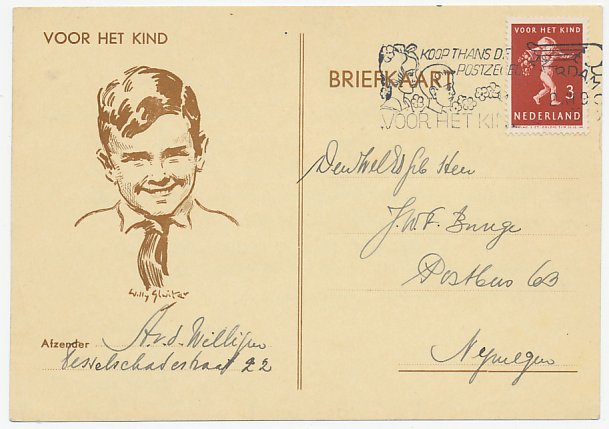 VOOR HET KIND
Willy Sluiter
Afzender A.v.d. Willigen
Tesselschadestraat 22
BRIEFKAART
KOOP THANS DE
POSTZEGELS
VOOR HET KIND
VOOR HET KIND
3
NEDERLAND
Den WelEd. Heer
J.W.F. Bunge
Postbus 63
Nymegen